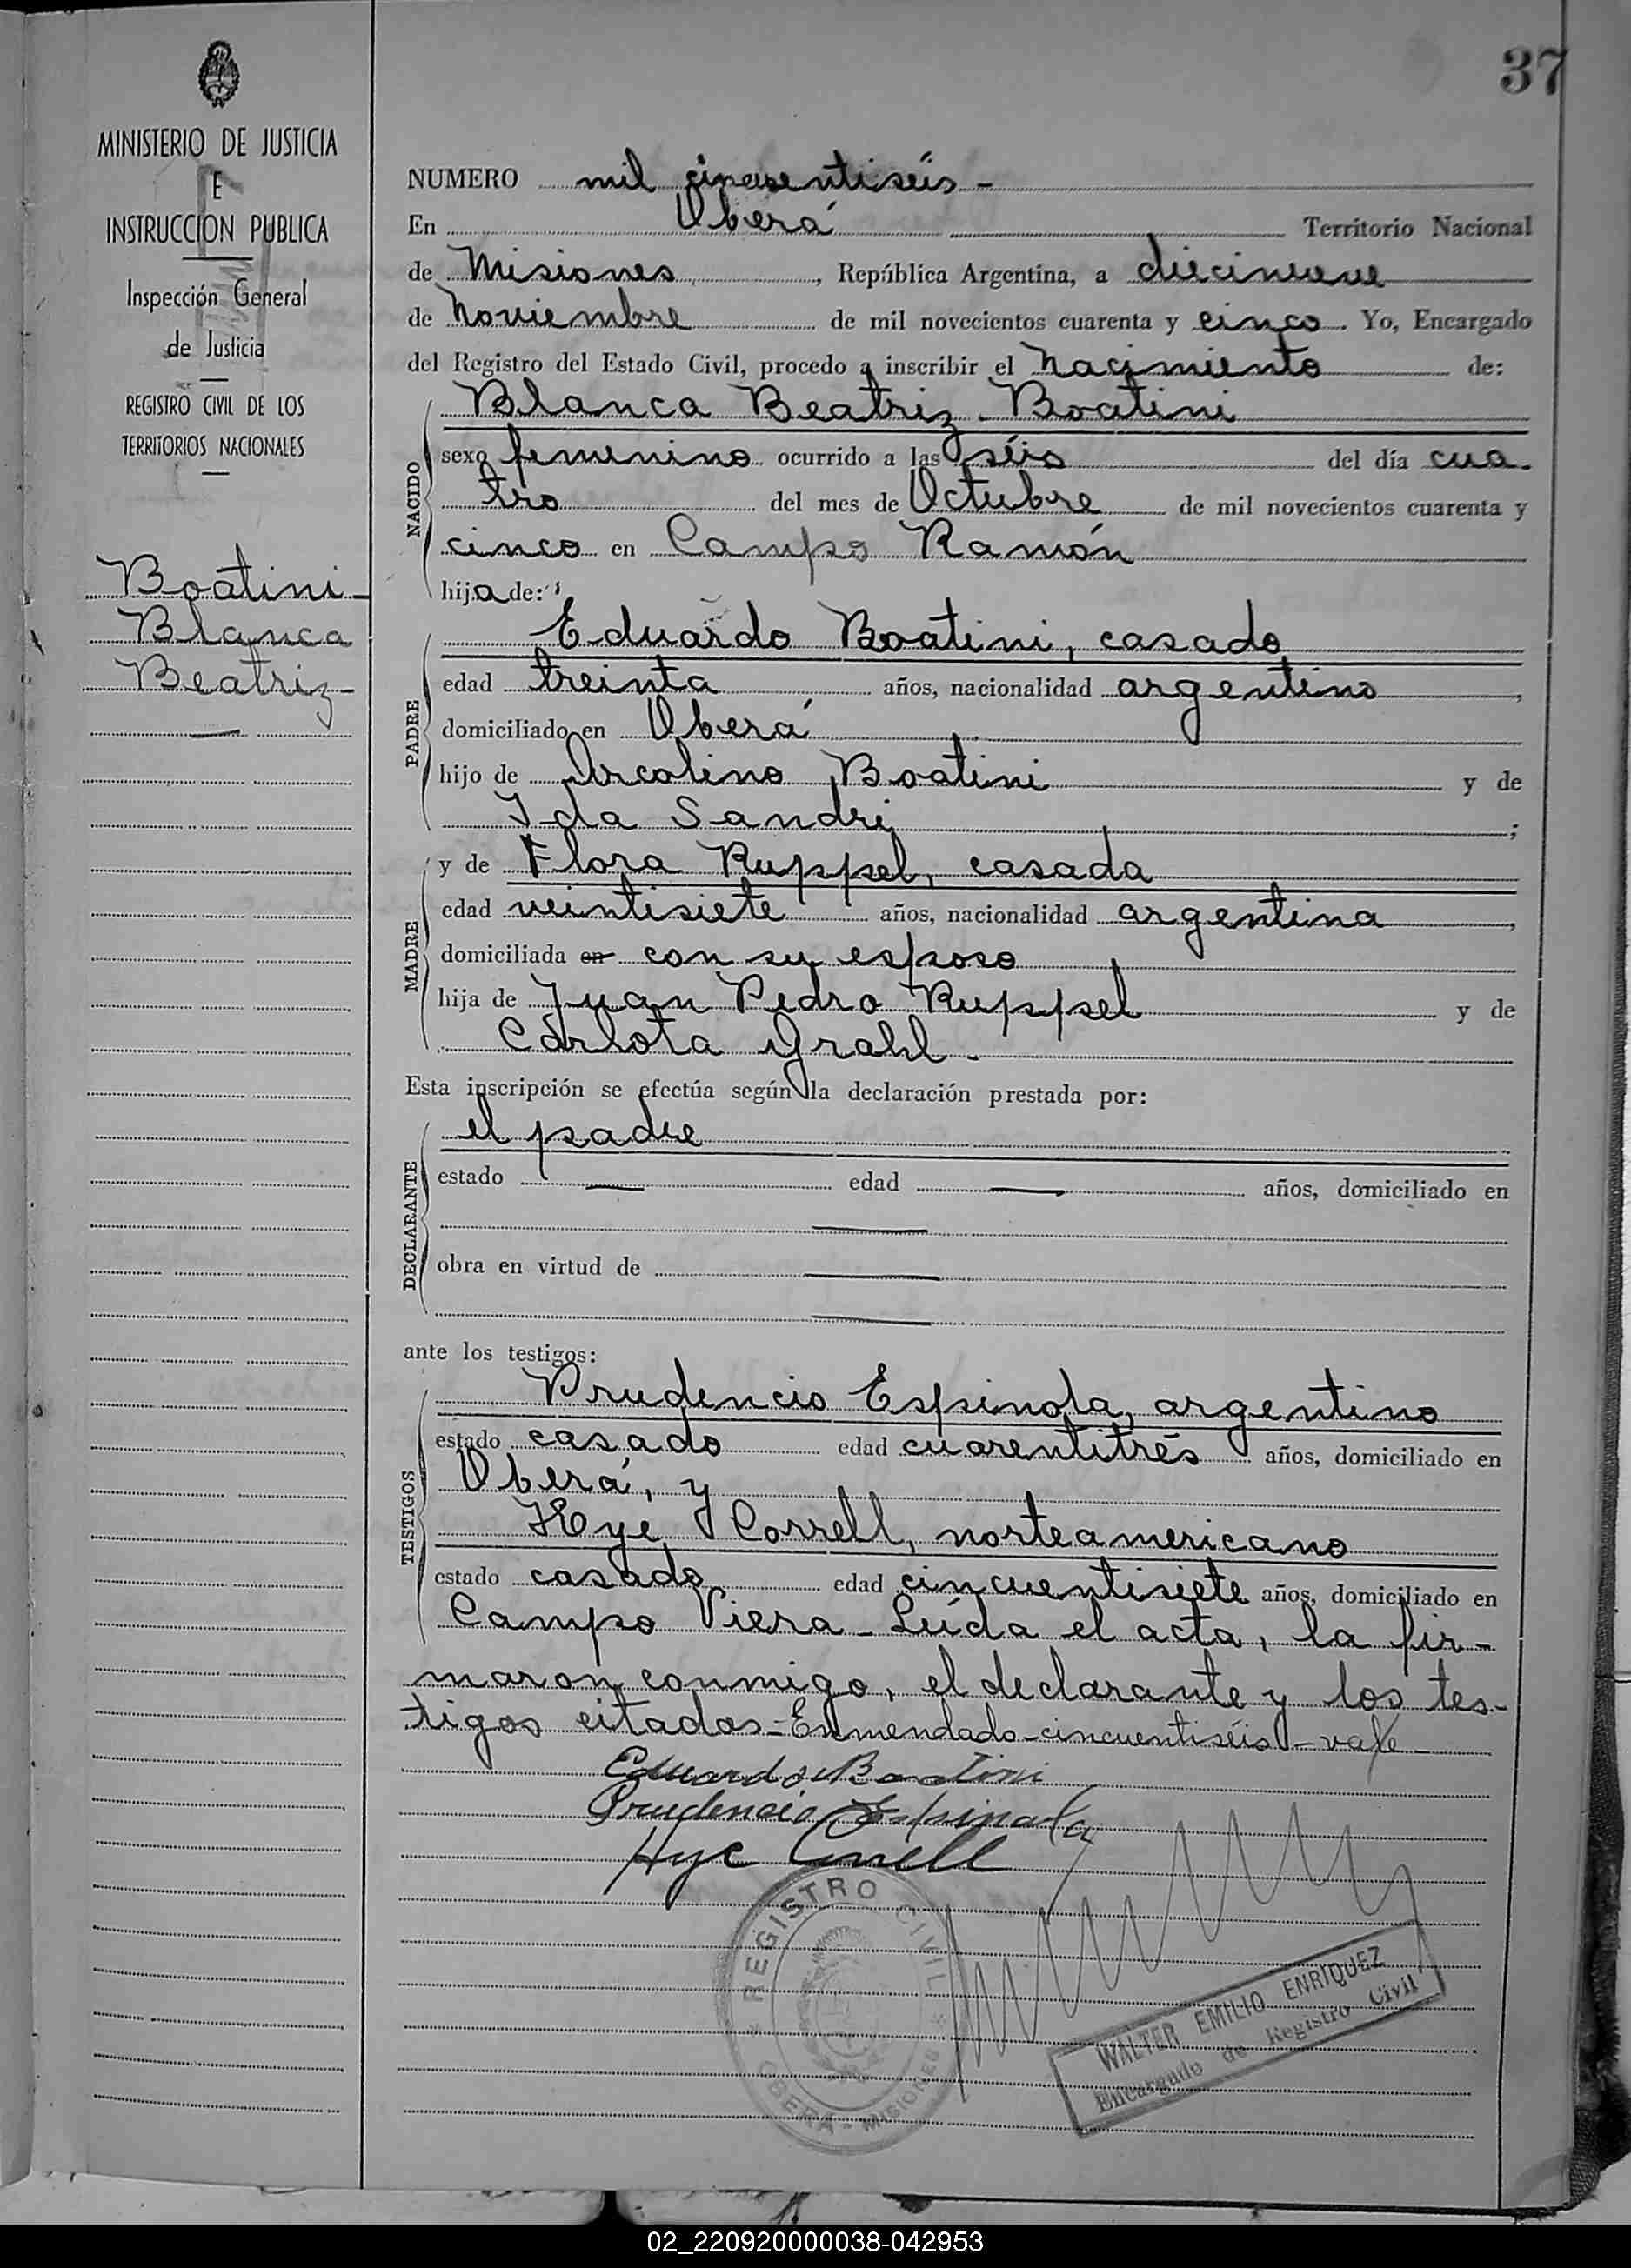 37
MINISTERIO DE JUSTICIA
E
INSTRUCCION PUBLICA
Inspección General
de Justicia
REGISTRO CIVIL DE LOS
TERRITORIOS NACIONALES
Boatini
Blanca
Beatriz
NUMERO mil cincuentiséis -
En Oberá Territorio Nacional
de Misiones, República Argentina, a diecinueve
de Noviembre de mil novecientos cuarenta y cinco. Yo, Encargado
del Registro del Estado Civil, procedo a inscribir el Nacimiento de:
NACIDO
Blanca Beatriz Boatini
sexo femenino ocurrido a las séis del día cua-
tro del mes de Octubre de mil novecientos cuarenta y
cinco en Campo Ramón
hija de:
PADRE
Eduardo Boatini, casado
edad treinta años, nacionalidad argentino,
domiciliado en Oberá
hijo de Arcolino Boatini y de
Ida Sandri;
MADRE
y de Flora Ruppel, casada
edad veintisiete años, nacionalidad argentina,
domiciliada en con su esposo
hija de Juan Pedro Ruppel y de
Carlota Grahl.
Esta inscripción se efectúa según la declaración prestada por:
DECLARANTE
el padre
estado — edad — años, domiciliado en
—
obra en virtud de —
—
ante los testigos:
TESTIGOS
Prudencio Espinola, argentino
estado casado edad cuarentitrés años, domiciliado en
Oberá, y
Hye Correll, norteamericano
estado casado edad cincuentisiete años, domiciliado en
Campo Viera - Leída el acta, la fir-
maron conmigo, el declarante y los tes-
tigos citados - Enmendado - cincuentiséis - vale
Eduardo Boatini
Prudencio Espinola
Hye Correll
REGISTRO CIVIL
OBERÁ - MISIONES
WALTER EMILIO ENRIQUEZ
Encargado de Registro Civil
02_220920000038-042953